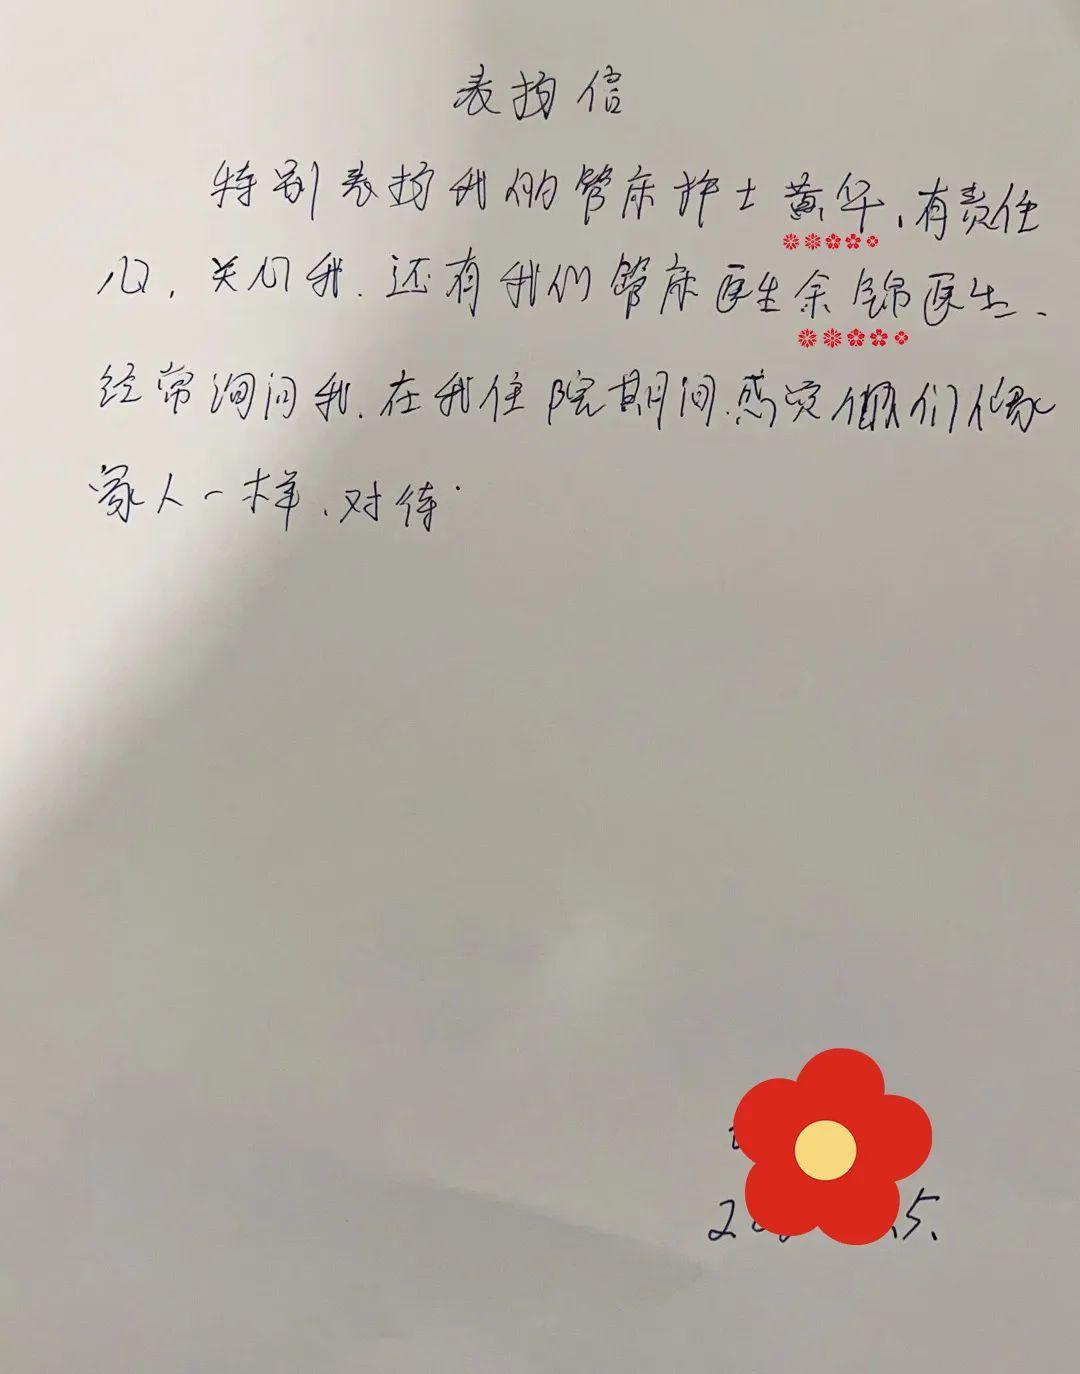 表扬信
特别表扬我的管床护士黄华,有责任
心,关心我.还有我们管床医生余锦医生、
经常询问我.在我住院期间.感觉他们像
家人一样、对待.
5.